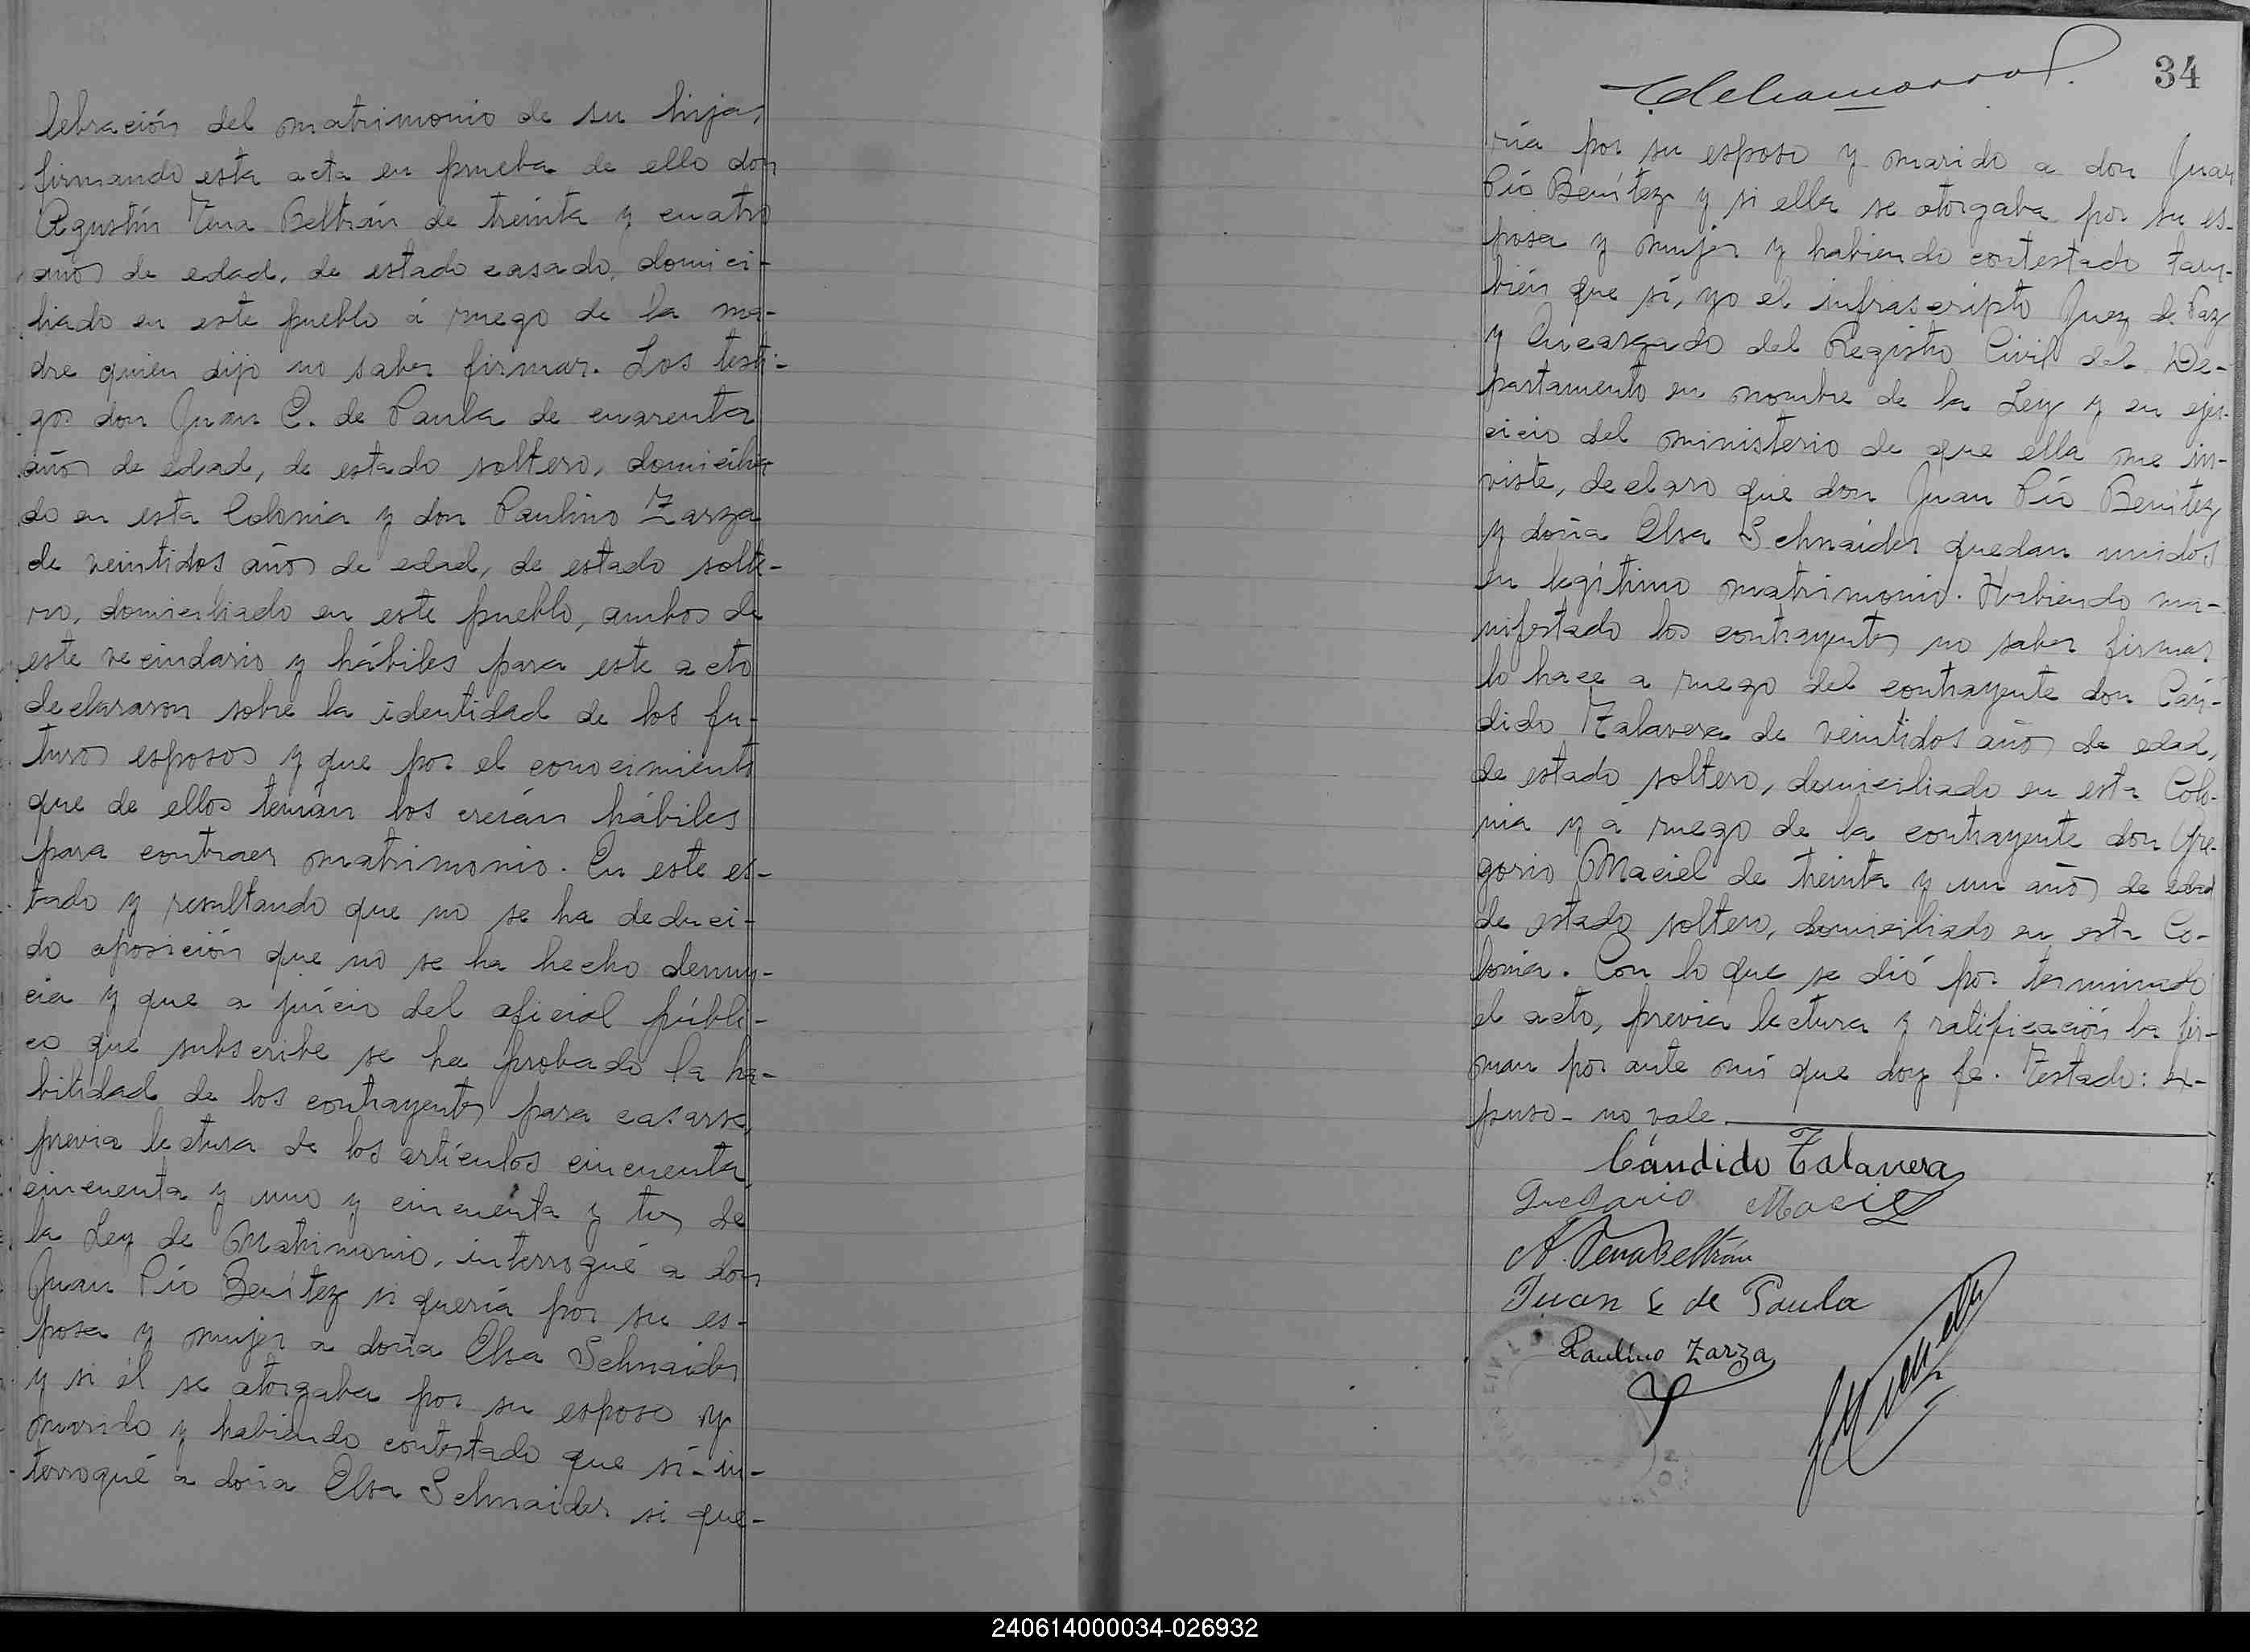 lebración del matrimonio de su hija,
firmando esta acta en prueba de ello don
Agustín Tena Beltrán de treinta y cuatro
años de edad, de estado casado, domici-
liado en este pueblo á ruego de la ma-
dre quien dijo no saber firmar. Los testi-
gos don Juan C. de Paula de cuarenta
años de edad, de estado soltero, domicilia-
do en esta Colonia y don Paulino Zarza
de veintidos años de edad, de estado solte-
ro, domiciliado en este pueblo, ambos de
este vecindario y hábiles para este acto
declararon sobre la identidad de los fu-
turos esposos y que por el conocimiento
que de ellos tenían los creían hábiles
para contraer matrimonio. En este es-
tado y resultando que no se ha deduci-
do oposición que no se ha hecho denun-
cia y que a juicio del oficial públi-
co que subscribe se ha probado la ha-
bilidad de los contrayentes para casarse,
previa lectura de los artículos cincuenta
cincuenta y uno y cincuenta y tres de
la Ley de Matrimonio, interrogué a don
Juan Pío Benítez si quería por su es-
posa y mujer a doña Elsa Schnaider
y si él se otorgaba por su esposo y
marido y habiendo contestado que sí - in-
terroqué a doña Elsa Schnaider si que-
34
ría por su esposo y marido a don Juan
Pío Benítez y si ella se otorgaba por su es-
posa y mujer y habiendo contestado tam-
bién que sí, yo el infrascripto Juez de Paz
y Encargado del Registro Civil del De-
partamento en nombre de la Ley y en ejer-
cicio del ministerio de que ella me in-
viste, declaro que don Juan Pío Benítez
y doña Elsa Schnaider quedan unidos
en legítimo matrimonio. Habiendo ma-
nifestado los contrayentes no saber firmar
lo hace a ruego del contrayente don Cán-
dido Talavera de veintidos años de edad,
de estado soltero, domiciliado en esta Colo-
nia y á ruego de la contrayente don Gre-
gorio Maciel de treinta y un años de edad
de estado soltero, domiciliado en esta Co-
lonia. Con lo que se dió por terminado
el acto, previa lectura y ratificación la fir-
man por ante mí que doy fe. Testado: ex-
puso - no vale.
Cándido Talavera
Gregorio Maciel
A. Tena Beltrán
Juan C de Paula
Paulino Zarza
240614000034-026932